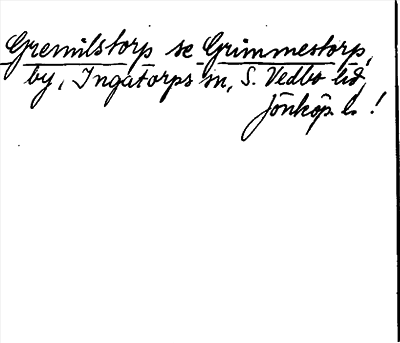 Gremilstorp se Grimmestorp,
by, Ingatorps sn, S. Vedbo hd,
Jönköp. l. !